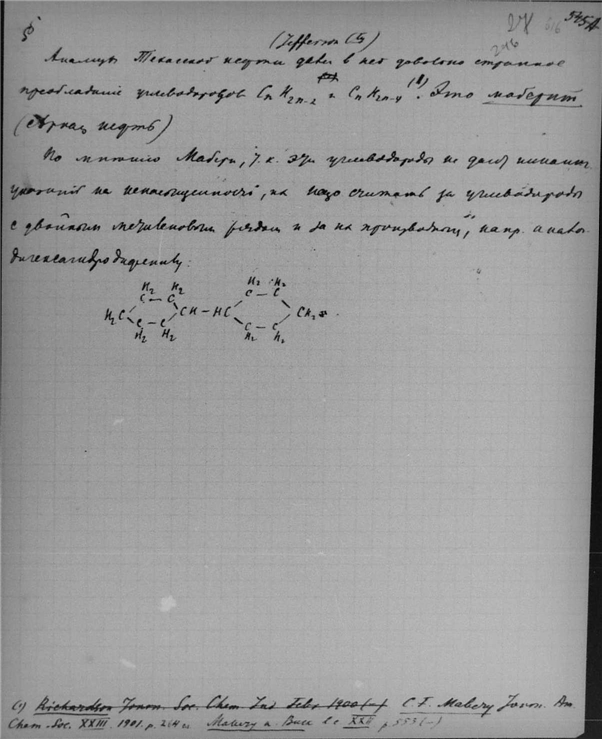 § 27 516 545A
(Jefferson C5) 2016
Анализы Техасской нефти дают в ней довольно странное
преобладание углеводородов CnH2n-2 и CnH2n-4 (1). Это маберит
нефть)
По мнению Мабери, т.к. эти углеводороды не дают никаких
указаний на ненасыщенность, их надо считать за углеводороды
с двойным метиленовым рядом и за их производные, напр. аналог.
H2 H2 H2 H2
C — C C — C
H2C CH — HC CH2
C — C C — C
H2 H2 H2 H2
(1) Richardson Journ. Soc. Chem Ind Febr 1900 (–) C.F. Mabery Journ. Am.
Chem. Soc. XXIII. 1901. p. 264 Mabery a. Buck l.c. XXII p 553 (–)